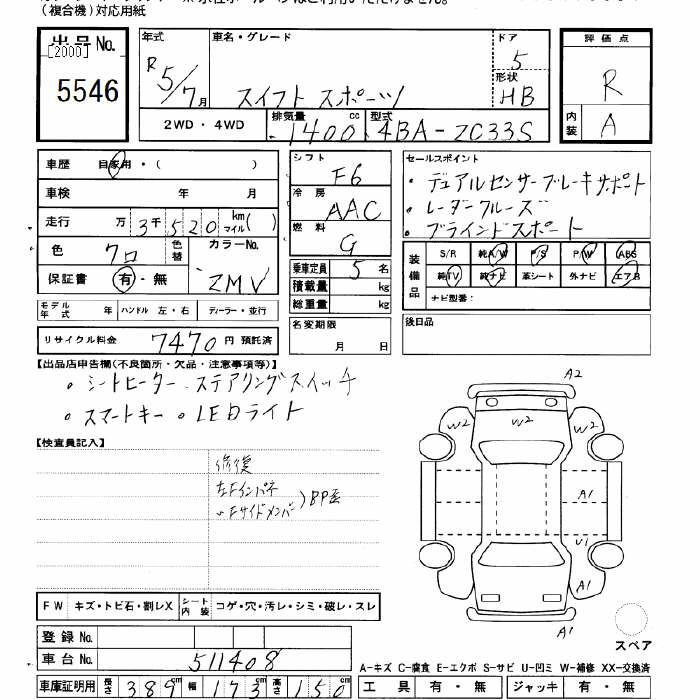 (複合機)対応用紙
出品No.
[2000]
5546
年式
R5/7月
車名・グレード
スイフト スポーツ
ドア
5
形状
HB
2WD・4WD
排気量
1400cc
型式
4BA-ZC33S
評価点
R
内装
A
車歴 自家用・( )
車検 年 月
走行 万3千520km マイル( )
色 クロ 色替
カラーNo.
ZMV
保証書 有・無
モデル年式 年 ハンドル 左・右 ディーラー・並行
リサイクル料金 7470円 預託済
シフト
F6
冷房
AAC
燃料
G
乗車定員 5名
積載量 kg
総重量 kg
名変期限
月 日
セールスポイント
・デュアルセンサーブレーキサポート
・レーダークルーズ
・ブラインドスポート
装備品
S/R 純A/W P/S P/W ABS
純TV 純ナビ 革シート 外ナビ エアB
ナビ型番:
後日品
【出品店申告欄(不良箇所・欠品・注意事項等)】
・シートヒーター ・ステアリングスイッチ
・スマートキー ・LEDライト
【検査員記入】
修復
左Fインパネ
〃Fサイドメンバー)BP歪
A2
W2 W2 W2
A1
U1
A1
A1
スペア
FW キズ・トビ石・割レX シート内装 コゲ・穴・汚レ・シミ・破レ・スレ
登録No.
車台No. 511408
車庫証明用 長さ 389cm 幅 173cm 高さ 150cm
A-キズ C-腐食 E-エクボ S-サビ U-凹ミ W-補修 XX-交換済
工具 有・無 ジャッキ 有・無